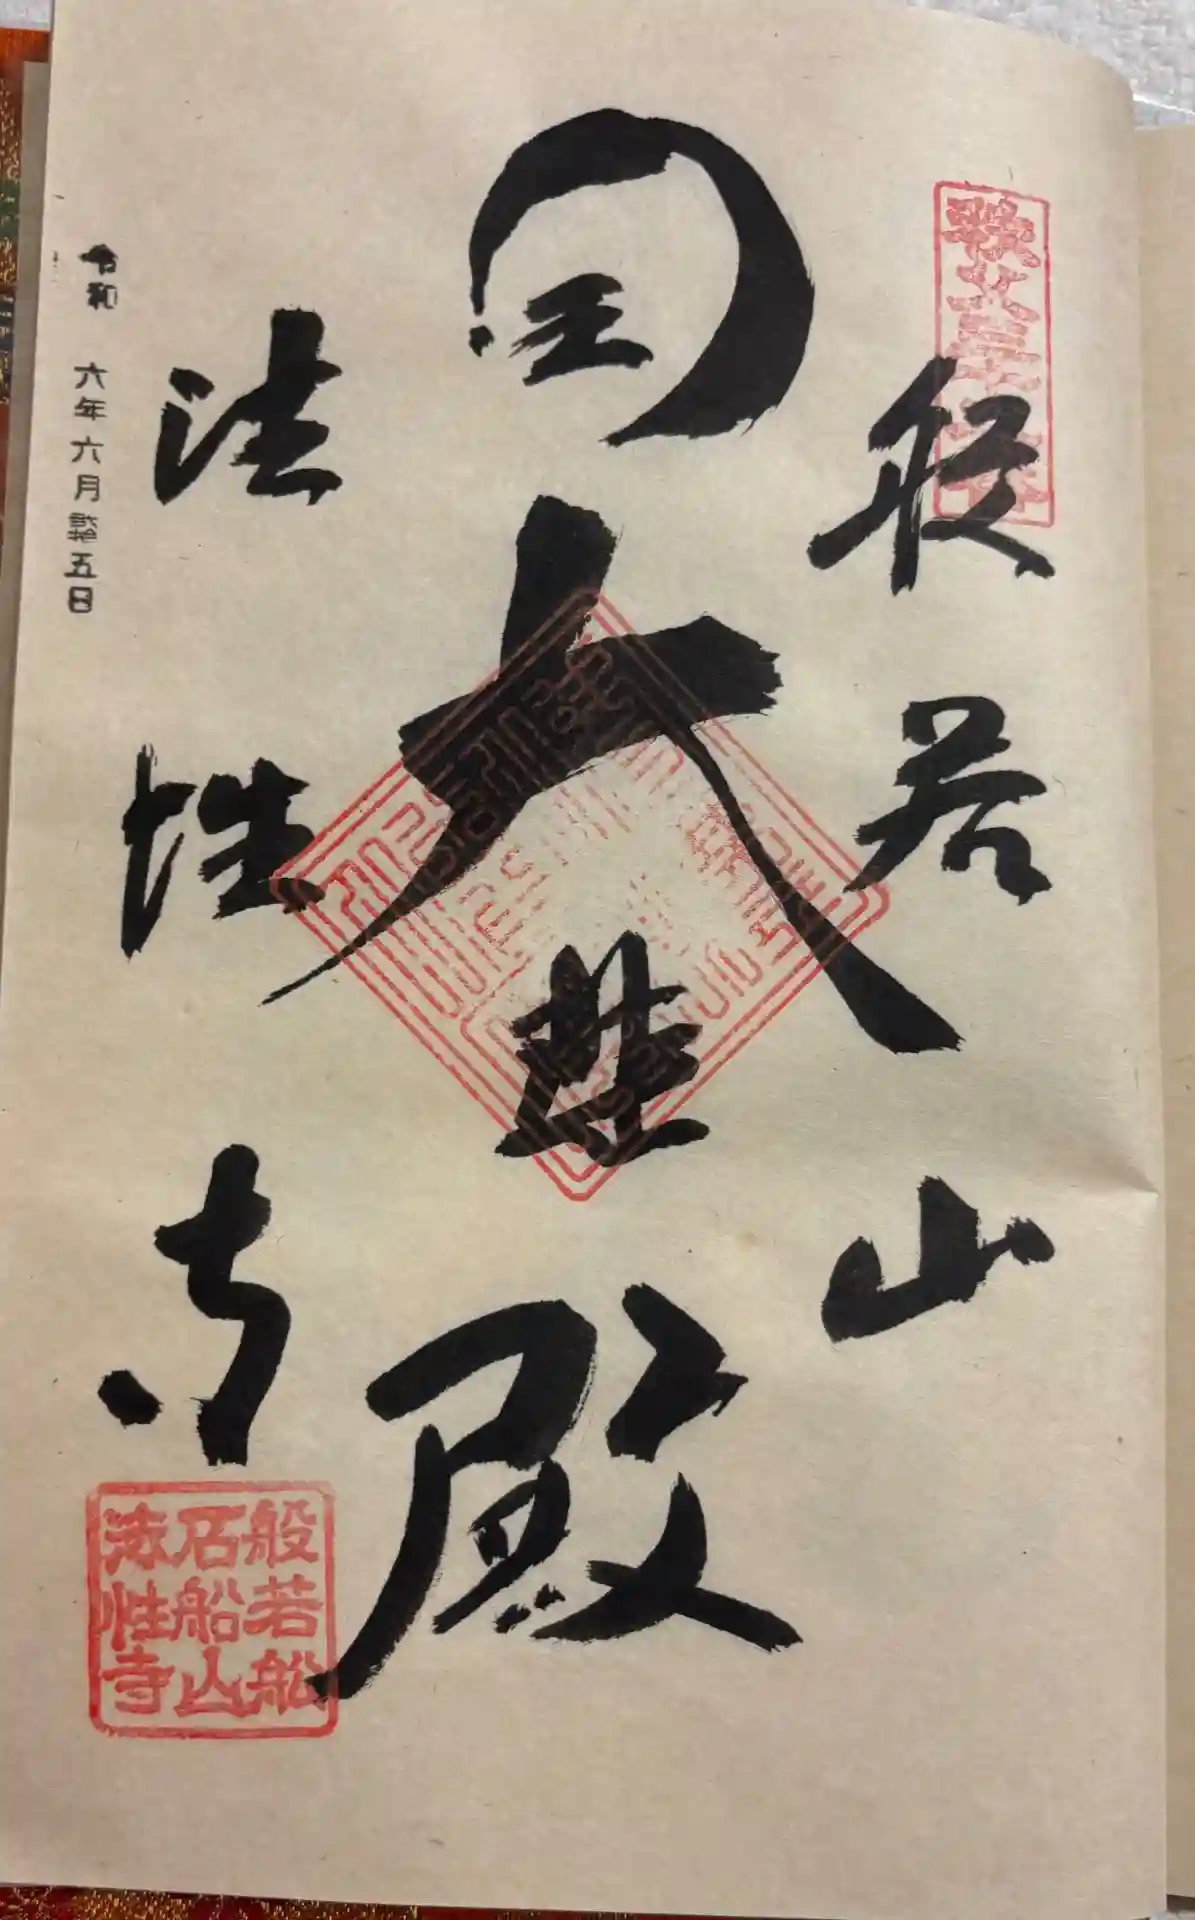 般若山
大悲殿
法性寺
令和 六年六月弐拾五日
般若船
石船山
法性寺